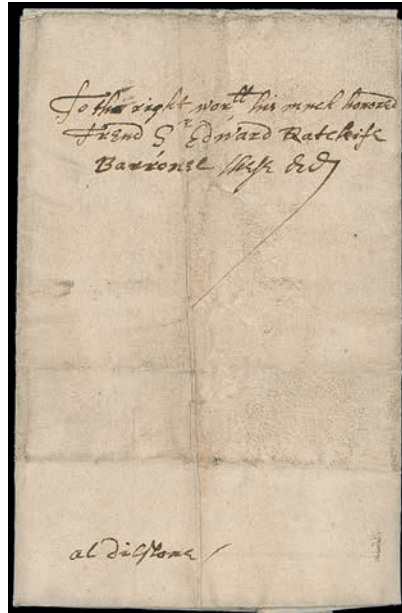 To the right worll his much honored
Frend Sr Edward Ratclife
Barronet these dd
at dilstone